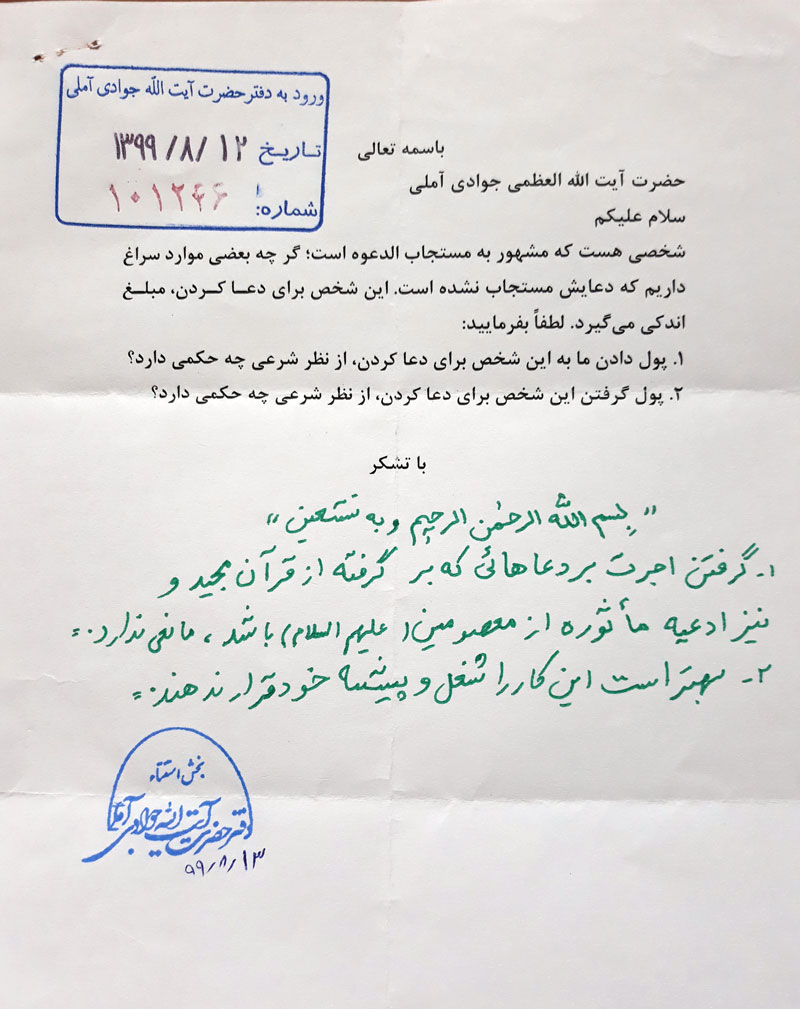 ورود به دفتر حضرت آیت الله جوادی آملی
تاریخ ۱۳۹۹/۸/۱۲
شماره: ۱۰۱۲۴۶
باسمه تعالی
حضرت آیت الله العظمی جوادی آملی
سلام علیکم
شخصی هست که مشهور به مستجاب الدعوه است؛ گر چه بعضی موارد سراغ
داریم که دعایش مستجاب نشده است. این شخص برای دعا کردن، مبلغ
اندکی می‌گیرد. لطفاً بفرمایید:
۱. پول دادن ما به این شخص برای دعا کردن، از نظر شرعی چه حکمی دارد؟
۲. پول گرفتن این شخص برای دعا کردن، از نظر شرعی چه حکمی دارد؟
با تشکر
"بسم الله الرحمن الرحیم و به نستعین"
۱- گرفتن اجرت بر دعاهائی که بر گرفته از قرآن مجید و
نیز ادعیه مأثوره از معصومین (علیهم السلام) باشد، مانعی ندارد.=
۲- بهتر است این کار را شغل و پیشه خود قرار ندهند.=
بخش استفتاء
دفتر حضرت آیت الله جوادی آملی
۹۹/۸/۱۳